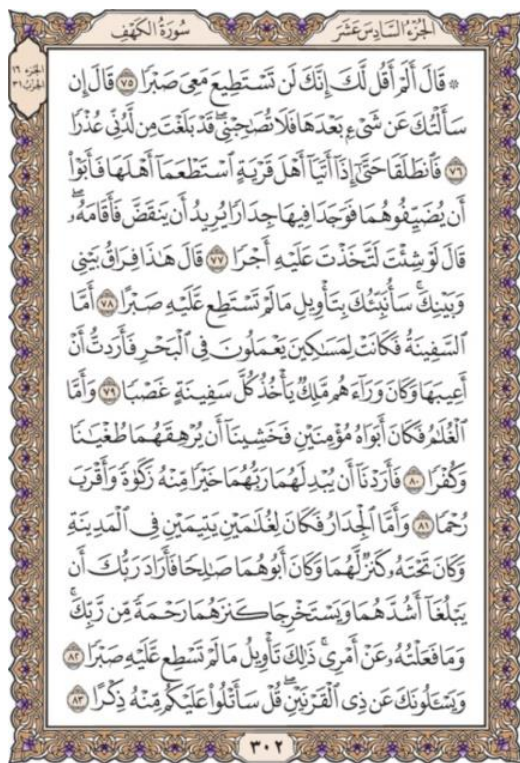 سُورَةُ الكَهْفِ
الجُزْءُ السَّادِسَ عَشَرَ
الجزء ١٦
الحزب ٣١
۞ قَالَ أَلَمْ أَقُل لَّكَ إِنَّكَ لَن تَسْتَطِيعَ مَعِيَ صَبْرٗا ٧٥ قَالَ إِن
سَأَلْتُكَ عَن شَيْءِۭ بَعْدَهَا فَلَا تُصَٰحِبْنِيۖ قَدْ بَلَغْتَ مِن لَّدُنِّي عُذْرٗا
٧٦ فَٱنطَلَقَا حَتَّىٰٓ إِذَآ أَتَيَآ أَهْلَ قَرْيَةٍ ٱسْتَطْعَمَآ أَهْلَهَا فَأَبَوْا۟
أَن يُضَيِّفُوهُمَا فَوَجَدَا فِيهَا جِدَارٗا يُرِيدُ أَن يَنقَضَّ فَأَقَامَهُۥۖ
قَالَ لَوْ شِئْتَ لَتَّخَذْتَ عَلَيْهِ أَجْرٗا ٧٧ قَالَ هَٰذَا فِرَاقُ بَيْنِي
وَبَيْنِكَۚ سَأُنَبِّئُكَ بِتَأْوِيلِ مَا لَمْ تَسْتَطِع عَّلَيْهِ صَبْرًا ٧٨ أَمَّا
ٱلسَّفِينَةُ فَكَانَتْ لِمَسَٰكِينَ يَعْمَلُونَ فِي ٱلْبَحْرِ فَأَرَدتُّ أَنْ
أَعِيبَهَا وَكَانَ وَرَآءَهُم مَّلِكٞ يَأْخُذُ كُلَّ سَفِينَةٍ غَصْبٗا ٧٩ وَأَمَّا
ٱلْغُلَٰمُ فَكَانَ أَبَوَاهُ مُؤْمِنَيْنِ فَخَشِينَآ أَن يُرْهِقَهُمَا طُغْيَٰنٗا
وَكُفْرٗا ٨٠ فَأَرَدْنَآ أَن يُبْدِلَهُمَا رَبُّهُمَا خَيْرٗا مِّنْهُ زَكَوٰةٗ وَأَقْرَبَ
رُحْمٗا ٨١ وَأَمَّا ٱلْجِدَارُ فَكَانَ لِغُلَٰمَيْنِ يَتِيمَيْنِ فِي ٱلْمَدِينَةِ
وَكَانَ تَحْتَهُۥ كَنزٞ لَّهُمَا وَكَانَ أَبُوهُمَا صَٰلِحٗا فَأَرَادَ رَبُّكَ أَن
يَبْلُغَآ أَشُدَّهُمَا وَيَسْتَخْرِجَا كَنزَهُمَا رَحْمَةٗ مِّن رَّبِّكَۚ
وَمَا فَعَلْتُهُۥ عَنْ أَمْرِيۚ ذَٰلِكَ تَأْوِيلُ مَا لَمْ تَسْطِع عَّلَيْهِ صَبْرٗا ٨٢
وَيَسْـَٔلُونَكَ عَن ذِي ٱلْقَرْنَيْنِۖ قُلْ سَأَتْلُوا۟ عَلَيْكُم مِّنْهُ ذِكْرًا ٨٣
٣٠٢